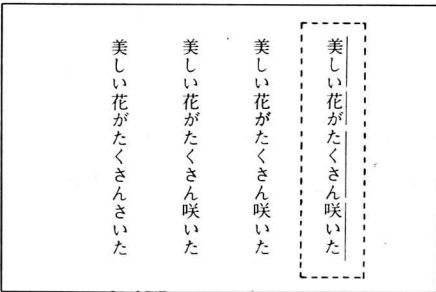 美しい花がたくさん咲いた
美しい花がたくさん咲いた
美しい花がたくさん咲いた
美しい花がたくさんさいた